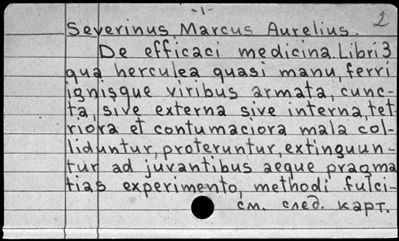 -1-
2
Severinus, Marcus Aurelius.
De efficaci medicina. Libri 3
qua herculea quasi manu, ferri
ignisque viribus armata, cunc-
ta, sive externa sive interna, tet-
riora et contumaciora mala col-
liduntur, proteruntur, extinguun-
tur ad juvantibus aeque pragma
tias experimento, methodi fulci-
см. след. карт.